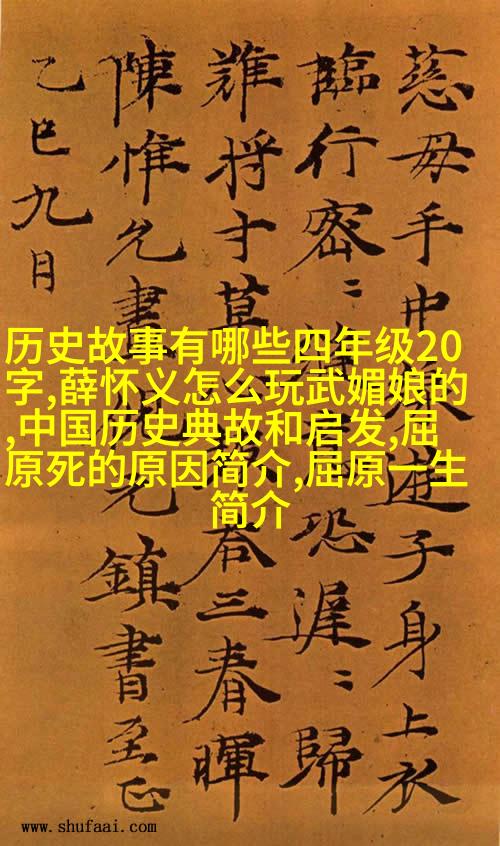 慈母手中線遊子身上衣
臨行密〻恐遲〻歸
難将寸草答三春暉
陳惟允書兄鎮書至正
乙巳九月
历史故事有哪些四年级20
字,薛怀义怎么玩武媚娘的
,中国历史典故和启发,屈
原死的原因简介,屈原一生
简介
www.shufaai.com